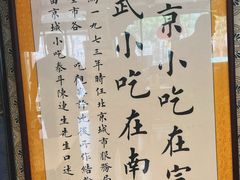 京小吃在宣
武小吃在南
一九七三年時任北京城市服務局
市各吃後作結
京城小吃泰斗陳連生先生口述